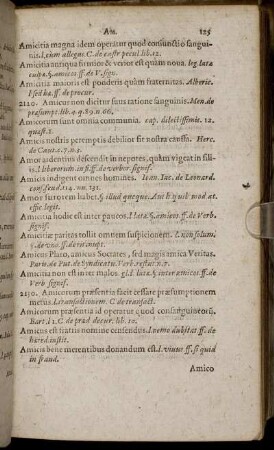 Am. 125
Amicitia magna idem operatur quod consunctio sangui-
nis. l.etiam allegat. C. de castr. pecul. lib. 12.
Amicitia antiqua firmior & verior est quam noua. leg. lata
culpa. §. amicos ff. de V. sign.
Amicitia maioris est ponderis quam fraternitas. Alberic.
l. sed ha. ff. de procur.
2120. Amicus non dicitur suus ratione sanguinis. Menda
præsumpt. lib. 4. q. 89. n. 66.
Amicorum sunt omnia communia. cap. dilectissimis. 12.
quæst. 1.
Amicis nostris peremptis debilior sit nostra caussa. Herc.
de Caut. c. 7. n. 5.
Amor auidentius descendit in nepotes, quàm vigeat in fili-
is. l. liberorum. in fi. ff. de verbor. signif.
Amicis indigent omnes homines. Ioan. Int. de Leonard.
consf. feud. 114. nu. 131.
Amor furorem habet. §. illud quoque. Aut. quib. mod. nat.
effic. legit.
Amicitia hodie est inter paucos. l. lata. §. amicos ff. de Verb.
signif.
Amicitiæ paritas tollit omnem suspicionem. l. non solum.
§. de vno. ff. de rit. nupt.
Amicus Plato, amicus Socrates, sed magis amica Veritas.
Paris de Put. de Syndicatu. Verb. restat. n. 7.
Amicitia non est inter males. gl. lata. §. inter amicos ff. de
Verb. signif.
2130. Amicorum præsentia facit cessare præsumptionem
metus. l. transactionem. C. de transact.
Amicorum præsentia id operatur quod consanguineorū.
Bart. l. 2. C. de præd. decur. lib. 12.
Amicus est fiatris nomine censendus. l. nemo dubitat. ff. de
hæred. instit.
Amicis bene merentibus donandum est. l. vinum ff. si quid
in fraud.
Amico